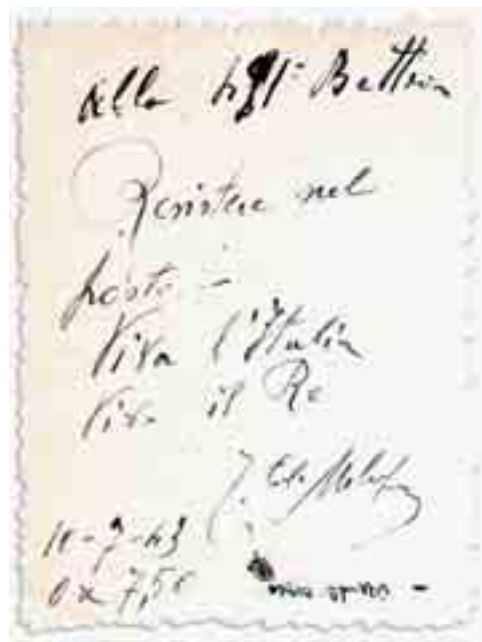 Alla 491ª Batteria
Resistere nel
posto -
Viva l'Italia
Viva il Re
10-7-43
Ore 7,50